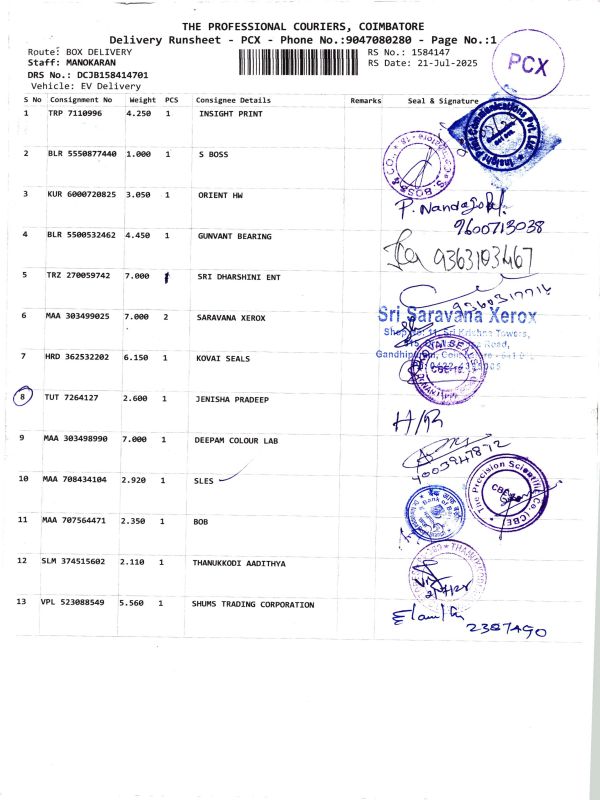 THE PROFESSIONAL COURIERS, COIMBATORE
Delivery Runsheet - PCX - Phone No.:9047080280 - Page No.:1
Route: BOX DELIVERY RS No.: 1584147
Staff: MANOKARAN RS Date: 21-Jul-2025
DRS No.: DCJB158414701
Vehicle: EV Delivery
PCX
S No Consignment No Weight PCS Consignee Details Remarks Seal & Signature
1 TRP 7110996 4.250 1 INSIGHT PRINT
Insight Print Communications Pvt. Ltd.
2 BLR 5550877440 1.000 1 S BOSS
S. BOSS & CO.
3 KUR 6000720825 3.050 1 ORIENT HW
P. Nandagopal
9600713038
4 BLR 5500532462 4.450 1 GUNVANT BEARING
9363103467
5 TRZ 270059742 7.000 1 SRI DHARSHINI ENT
6 MAA 303499025 7.000 2 SARAVANA XEROX
Sri Saravana Xerox
Shop No: 11, Sri Krishna Towers,
Road,
7 HRD 362532202 6.150 1 KOVAI SEALS
KOVAI SEALS
8 TUT 7264127 2.600 1 JENISHA PRADEEP
H/R
9 MAA 303498990 7.000 1 DEEPAM COLOUR LAB
10 MAA 708434104 2.920 1 SLES
The Precision Scientific Co. (CBE)
11 MAA 707564471 2.350 1 BOB
12 SLM 374515602 2.110 1 THANUKKODI AADITHYA
13 VPL 523088549 5.560 1 SHUMS TRADING CORPORATION
2387490